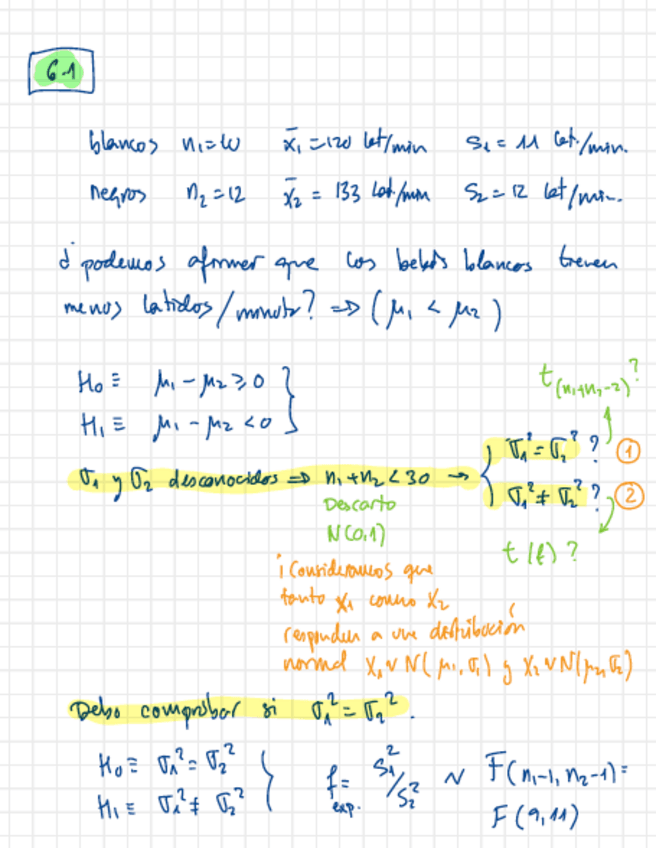 6.1
blancos n₁=10 x̄₁=120 lat/min S₁ = 11 lat./min.
negros n₂=12 x̄₂ = 133 lat/min S₂ = 12 lat/min.
¿podemos afirmar que los bebés blancos tienen
menos latidos/minuto? ⇒ (μ₁ < μ₂)
H₀ ≡ μ₁ - μ₂ ≥ 0
H₁ ≡ μ₁ - μ₂ < 0
t(n₁+n₂-2)?
σ₁² = σ₂² ? ①
σ₁ y σ₂ desconocidos ⇒ n₁+n₂ < 30 →
σ₁² ≠ σ₂² ? ②
Descarto
N(0,1)
t(f)?
¡Consideramos que
tanto X₁ como X₂
responden a una distribución
normal X₁ ~ N(μ₁, σ₁) y X₂ ~ N(μ₂, σ₂)
Debo comprobar si σ₁² = σ₂².
H₀ ≡ σ₁² = σ₂²
H₁ ≡ σ₁² ≠ σ₂²
f exp. = S₁²/S₂² ~ F(n₁-1, n₂-1) =
F(9,11)